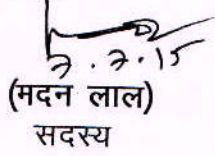 7.7.15
(मदन लाल)
सदस्य